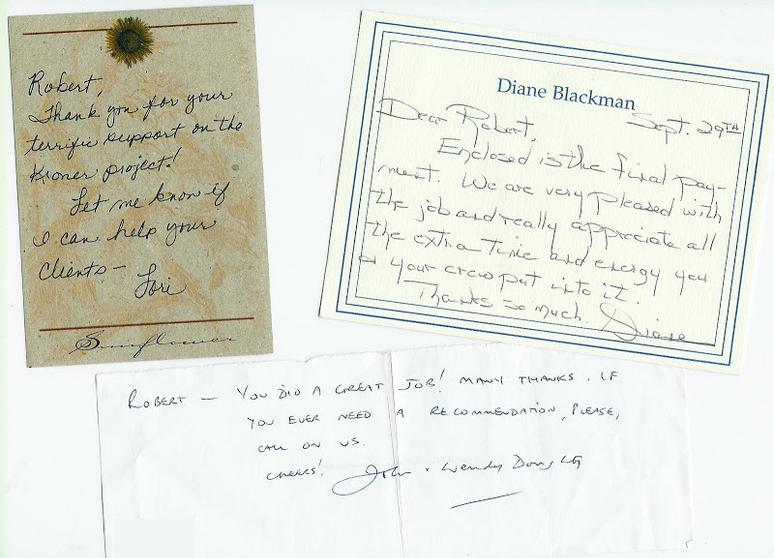 Robert,
Thank you for your
terrific support on the
Kroner project!
Let me know if
I can help your
clients —
Lori
Sunflower
Diane Blackman
Sept. 29TH
Dear Robert,
Enclosed is the final pay-
ment. We are very pleased with
the job and really appreciate all
the extra time and energy you
& your crew put into it.
Thanks so much. Diane
ROBERT — YOU DID A GREAT JOB! MANY THANKS. IF
YOU EVER NEED A RECOMMENDATION, PLEASE,
CALL ON US.
CHEERS! John & Wendy